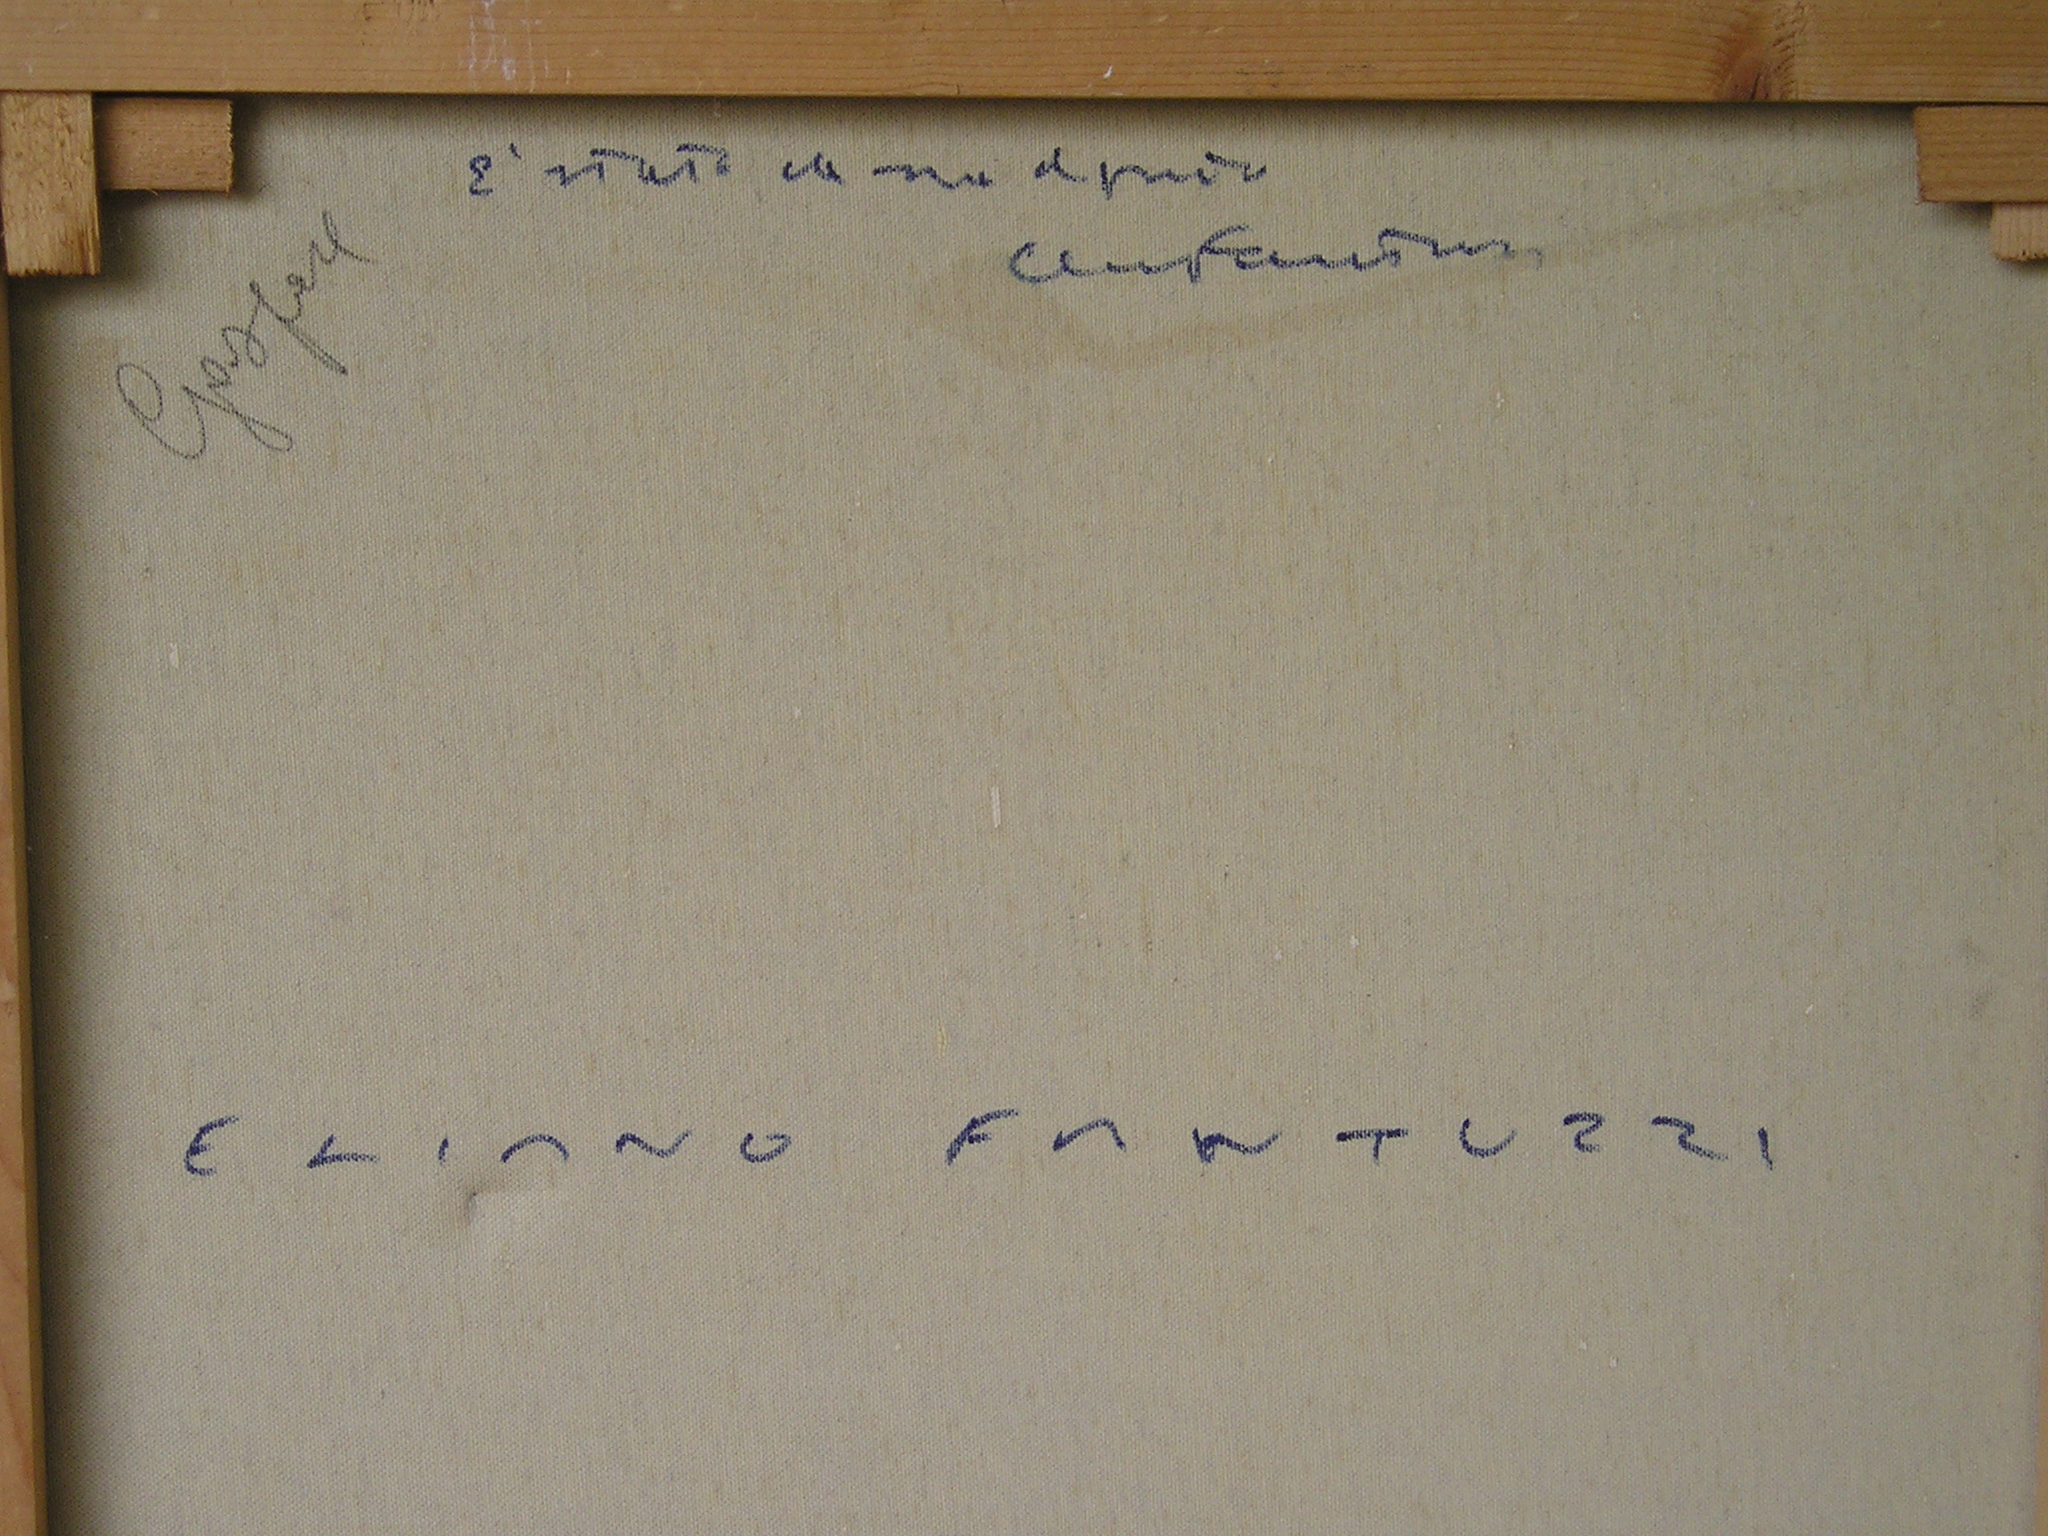 E' stato da me dipinto
Gaspare
ELIANO FANTUZZI